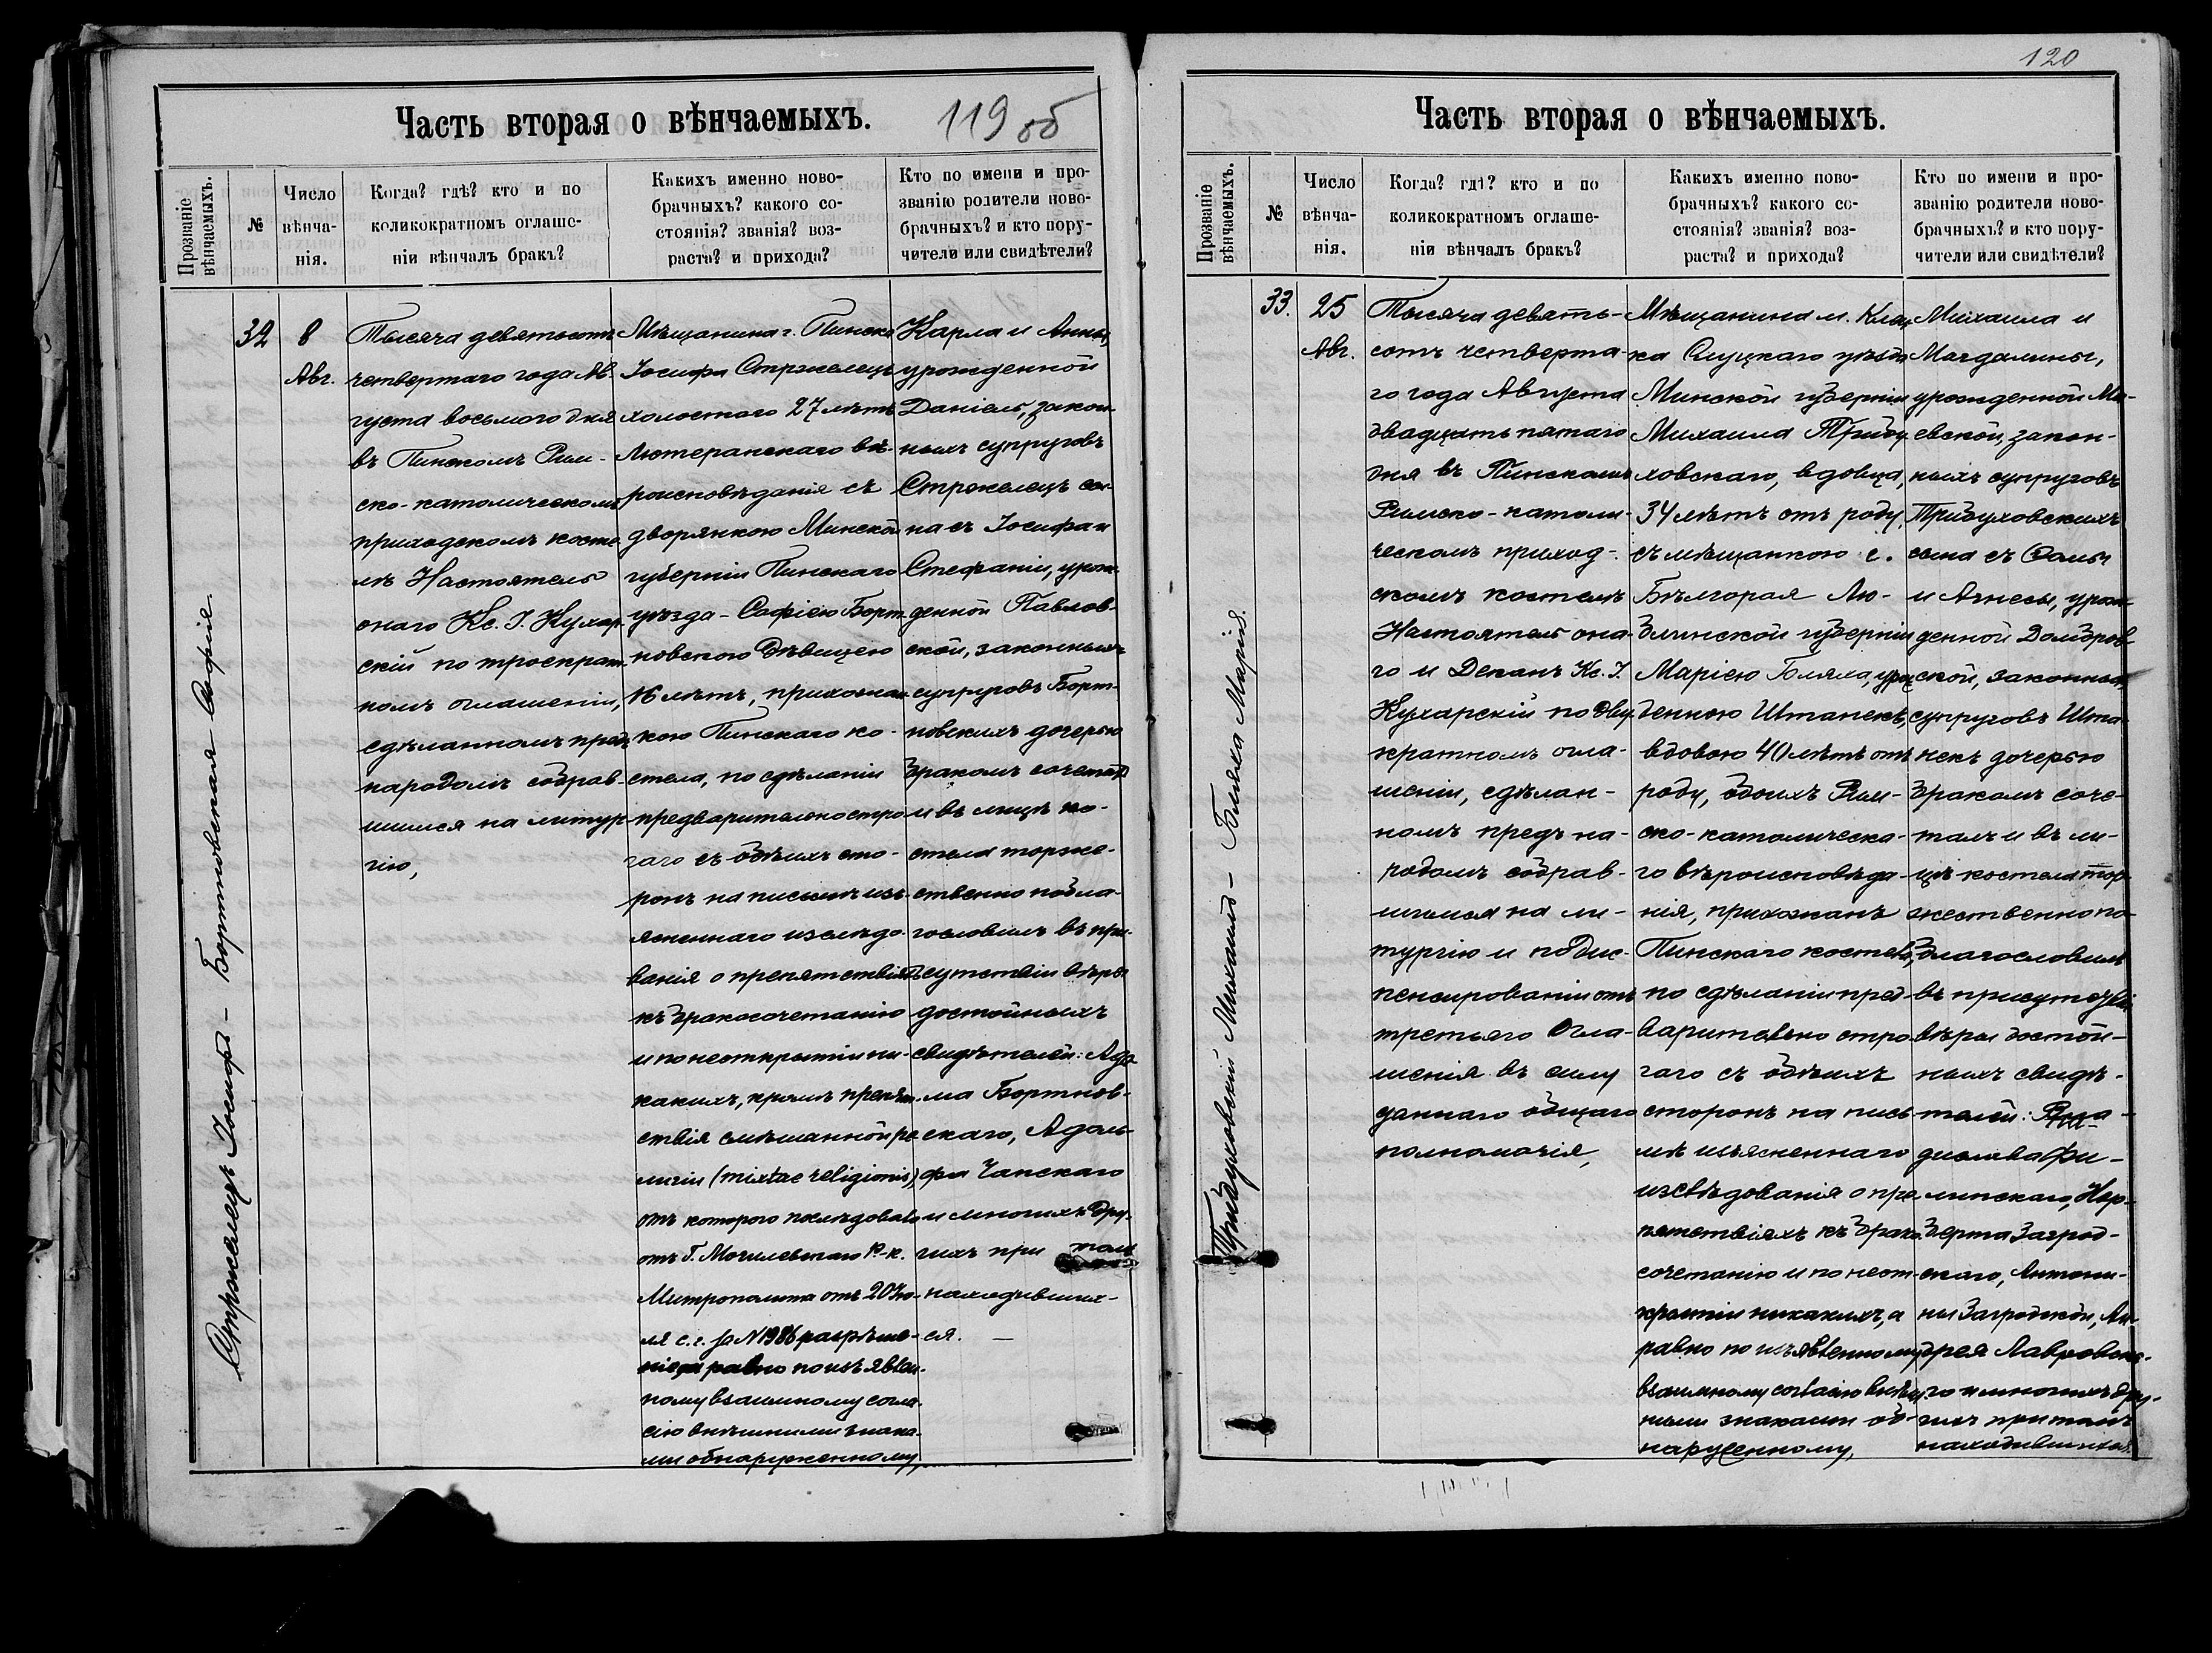 120
Часть вторая о вѣнчаемыхъ.
119 об
Прозваніе вѣнчаемыхъ.
№
Число вѣнча-
нія.
Когда? гдѣ? кто и по
коликократномъ оглаше-
ніи вѣнчалъ бракъ?
Какихъ именно ново-
брачныхъ? какого со-
стоянія? званія? воз-
раста? и прихода?
Кто по имени и про-
званію родители ново-
брачныхъ? и кто пору-
чители или свидѣтели?
Стржелецъ Іосифъ – Бортновская Софія.
32
8
Авг.
Тысяча девятьсотъ
четвертаго года Ав-
густа восьмого дня
въ Пинскомъ Рим-
ско-католическомъ
приходскомъ косте-
лѣ Настоятель
онаго Кс. І. Кухар-
скій по троекрат-
номъ оглашеніи,
сдѣланномъ предъ
народомъ собрав-
шимся на литур-
гію,
Мѣщанина г. Пинска
Іосифа Стржелецъ
холостаго 27 лѣтъ
Лютеранскаго вѣ-
роисповѣданія съ
дворянкою Минской
губерніи Пинскаго
уѣзда – Софіею Борт-
новскою дѣвицею
16 лѣтъ, прихожан-
кою Пинскаго ко-
стела, по сдѣланіи
предварительно стро-
гаго съ обѣихъ сто-
ронъ на письмѣ изъ-
ясненнаго изслѣдо-
ванія о препятствіяхъ
къ бракосочетанію
и по неоткрытіи ни-
какихъ, кромѣ препят-
ствія смѣшанной ре-
лигіи (mixtae religionis),
отъ котораго послѣдовало
отъ Г. Могилевскаго Р.-к.
Митрополита отъ 20 Ію-
ля с.г. за N 1986 разрѣше-
ніе, а равно по изъявлен-
ному взаимному согла-
сію внѣшними знака-
ми обнаруженному,
Карла и Анны,
урожденной
Даніель, закон-
ныхъ супруговъ
Стржелецъ сы-
на съ Іосифа и
Стефаніи, урож-
денной Павлов-
ской, законныхъ
супруговъ Борт-
новскихъ дочерью
бракомъ сочеталъ
и въ лицѣ ко-
стела торже-
ственно побла-
гословилъ въ при-
сутствіи вѣры
достойныхъ
свидѣтелей: Ада-
ма Бортнов-
скаго, Адоль-
фа Чапскаго
и многихъ дру-
гихъ при томъ
находивших-
ся. —
Часть вторая о вѣнчаемыхъ.
Прозваніе вѣнчаемыхъ.
№
Число вѣнча-
нія.
Когда? гдѣ? кто и по
коликократномъ оглаше-
ніи вѣнчалъ бракъ?
Какихъ именно ново-
брачныхъ? какого со-
стоянія? званія? воз-
раста? и прихода?
Кто по имени и про-
званію родители ново-
брачныхъ? и кто пору-
чители или свидѣтели?
Трибуховскій Михаилъ – Боляха Марія.
33.
25
Авг.
Тысяча девять-
сотъ четверта-
го года Августа
двадцать пятаго
дня въ Пинскомъ
Римско-католи-
ческомъ приход-
скомъ костелѣ
Настоятель она-
го и Деканъ Кс. І.
Кухарскій по дву-
кратномъ огла-
шеніи, сдѣлан-
номъ предъ на-
родомъ собрав-
шимся на ли-
тургію и по дис-
пенсированіи отъ
третьяго огла-
шенія въ силу
даннаго общаго
полномочія,
Мѣщанина м. Клец-
ка Слуцкаго уѣзда
Минской губерніи
Михаила Трибу-
ховскаго, вдовца,
34 лѣтъ отъ роду,
съ мѣщанкою г.
Бѣлгорая Лю-
блинской губерніи
Маріею Боляха, урож-
денною Штанекъ,
вдовою 40 лѣтъ отъ
роду, обоихъ Рим-
ско-католическа-
го вѣроисповѣда-
нія, прихожанъ
Пинскаго костела,
по сдѣланіи пред-
варительно стро-
гаго съ обѣихъ
сторонъ на пись-
мѣ изъясненнаго
изслѣдованія о пре-
пятствіяхъ къ брако-
сочетанію и по неот-
крытіи никакихъ, а
равно по изъявленному
взаимному согласію внѣш-
ними знаками об-
наруженному,
Михаила и
Магдалины,
урожденной
законныхъ супруговъ
Трибуховскихъ
сына съ Фомы
и Агнесы, урож-
денной Домбров-
ской, законныхъ
супруговъ Шта-
некъ дочерью
бракомъ соче-
талъ и въ ли-
цѣ костела тор-
жественно по-
благословилъ
въ присутствіи
вѣры достой-
ныхъ свидѣ-
телей:
Фи-
липскаго, Нор-
берта Заград-
скаго, Антони-
ны Заградской, Ан-
дрея Лавровска-
го и многихъ дру-
гихъ при томъ
находившихся.